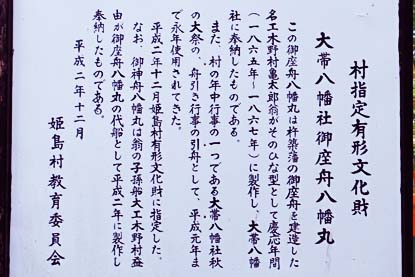 村指定有形文化財
大帯八幡社御座舟八幡丸
この御座舟八幡丸は杵築藩の御座舟を建造した
名工木野村亀太郎翁がそのひな型として慶応年間
(一八六五年〜一八六七年)に製作し、大帯八幡
社に奉納したものである。
また、村の年中行事の一つである大帯八幡社秋
の大祭の、舟引き行事の引舟として、平成元年ま
で永年使用されてきた。
平成二年十二月姫島村有形文化財に指定した。
なお、御神舟八幡丸は翁の子孫船大工木野村益
由が御座舟八幡丸の代船として平成二年に製作し
奉納したものである。
平成二年十二月
姫島村教育委員会